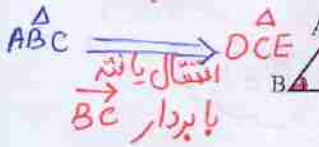 △ABC ⟹ △DCE
A
انتقال یافته
B
با بردار BC→